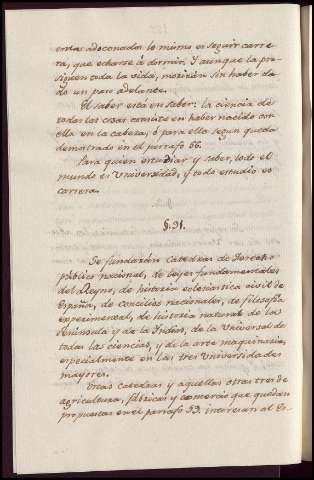 enras adoconados lo mismo es seguir carre-
ra, que echarse á dormir. Y aunque la pro-
siguen toda la vida, morirán sin haber da-
do un paso adelante.
El saber está en saber: la ciencia de
todas las cosas consiste en haber nacido con
ella en la cabeza, ó para ella segun queda
demostrado en el parrafo 66.
Para quien estudiar y saber, todo el
mundo es Universidad, y todo estudio es
carrera.
§. 91.
Se fundarán catedras de Derecho
público nacional, de leyes fundamentales
del Reyno, de historia eclesiastica civil de
España, de concilios nacionales, de filosofia
experimental, de historia natural de la
Peninsula y de la Indias, de la Universal de
todas las ciencias, y de la arte maquinaria,
especialmente en las tres Universidades
mayores.
Otras catedras y aquellas otras tres de
agricultura, fábricas y comercio que quedan
propuestas en el parrafo 53. interesan al Es-